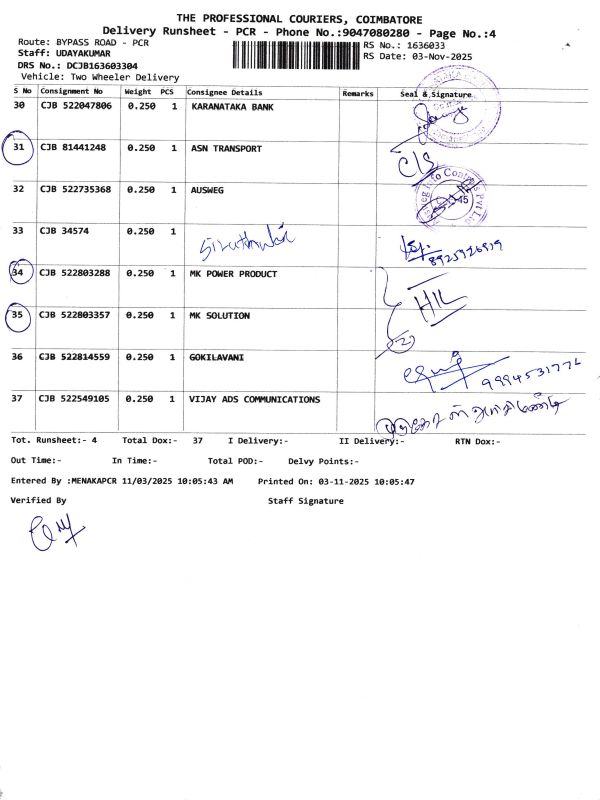 THE PROFESSIONAL COURIERS, COIMBATORE
Delivery Runsheet - PCR - Phone No.:9047080280 - Page No.:4
Route: BYPASS ROAD - PCR RS No.: 1636033
Staff: UDAYAKUMAR RS Date: 03-Nov-2025
DRS No.: DCJB163603304
Vehicle: Two Wheeler Delivery
S No Consignment No Weight PCS Consignee Details Remarks Seal & Signature
30 CJB 522047806 0.250 1 KARANATAKA BANK
31 CJB 81441248 0.250 1 ASN TRANSPORT C/S
32 CJB 522735368 0.250 1 AUSWEG
33 CJB 34574 0.250 1 8925926919
34 CJB 522803288 0.250 1 MK POWER PRODUCT
35 CJB 522803357 0.250 1 MK SOLUTION
36 CJB 522814559 0.250 1 GOKILAVANI
37 CJB 522549105 0.250 1 VIJAY ADS COMMUNICATIONS
Tot. Runsheet:- 4 Total Dox:- 37 I Delivery:- II Delivery:- RTN Dox:-
Out Time:- In Time:- Total POD:- Delvy Points:-
Entered By :MENAKAPCR 11/03/2025 10:05:43 AM Printed On: 03-11-2025 10:05:47
Verified By Staff Signature